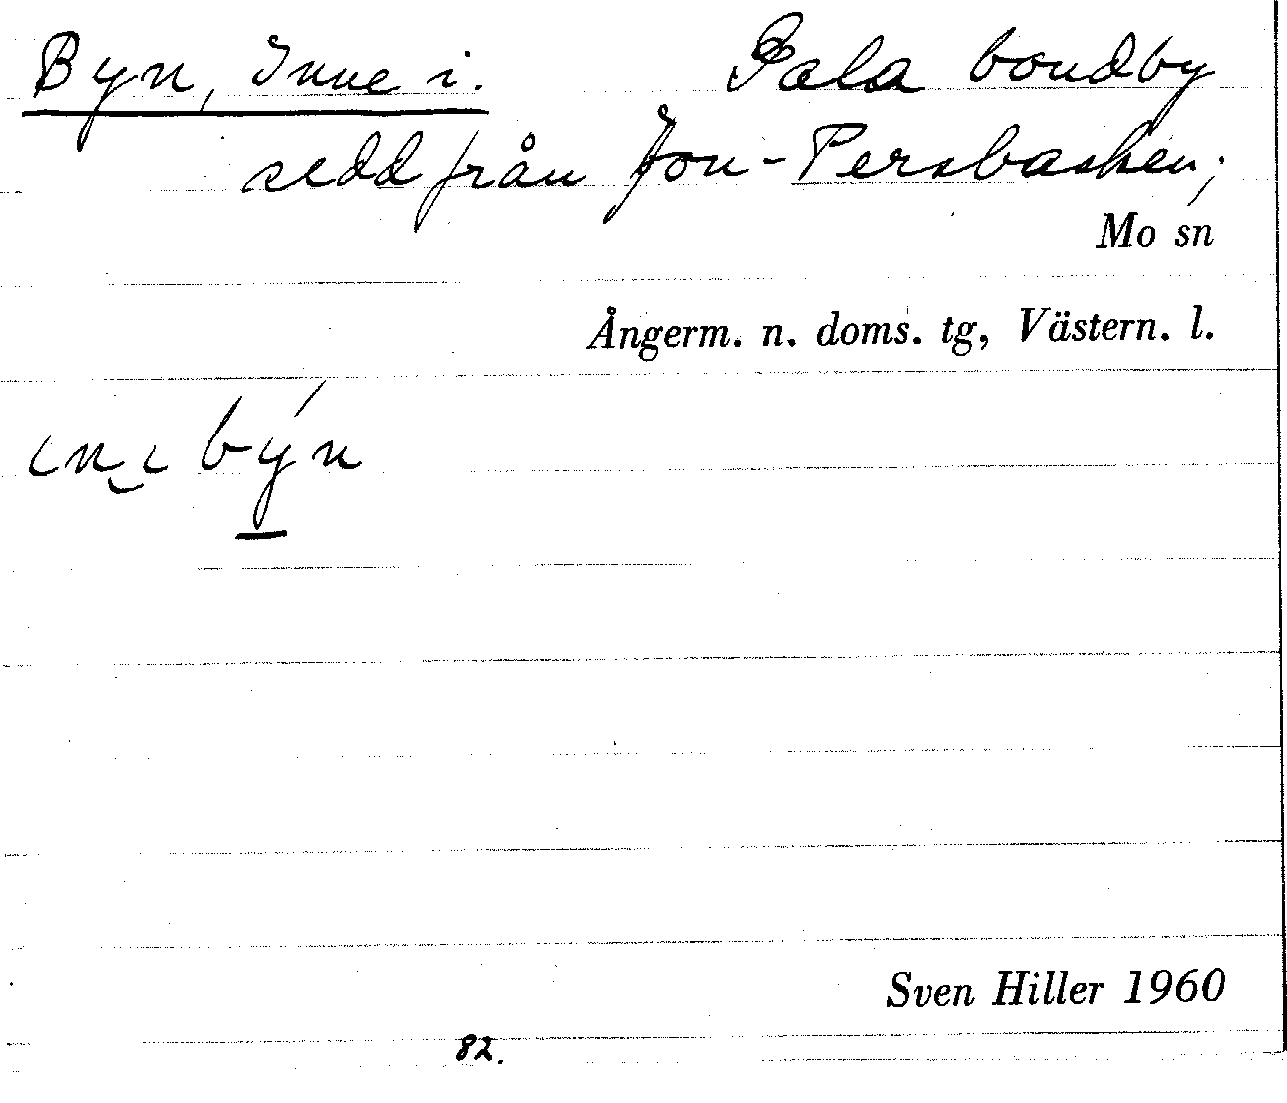 Byn, Inne i. Sala bondby
sedd från Jon-Persbacken;
Mo sn
Ångerm. n. doms. tg, Västern. l.
ɩn̮ɩ býn
Sven Hiller 1960
82.